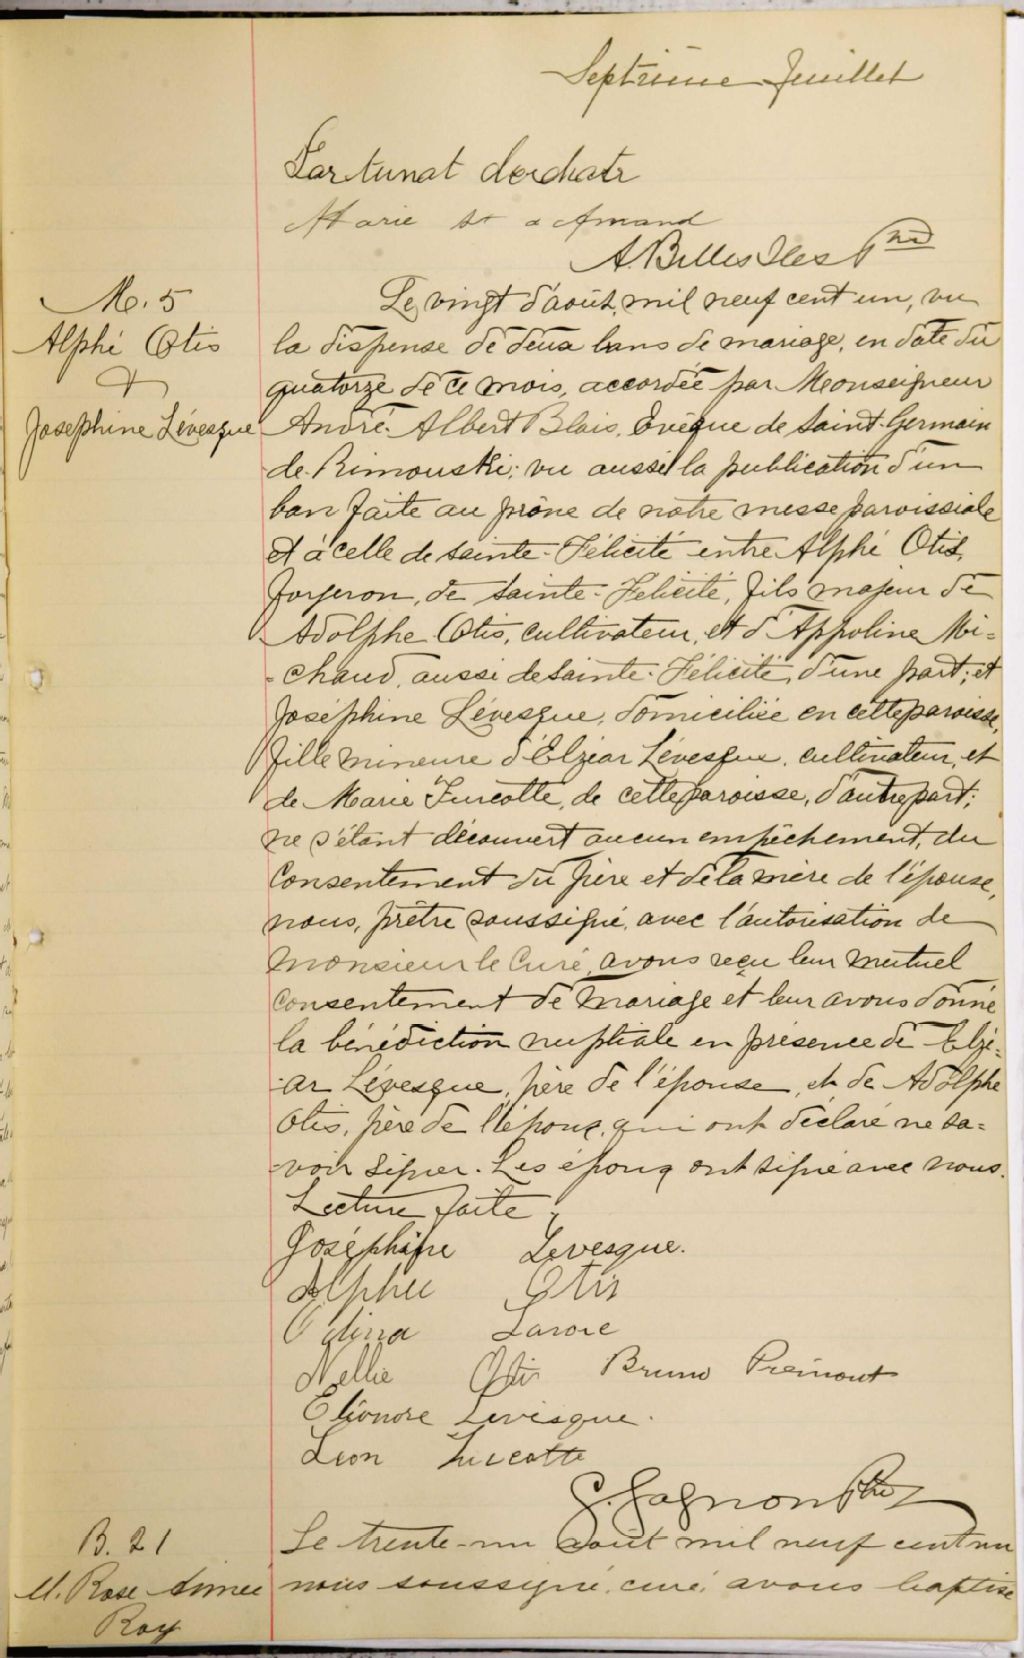 Septième feuillet
Fortunat
Marie St Amand
A. Belles Iles Ptre
M. 5
Alphé Otis
&
Josephine Lévesque
Le vingt d'août, mil neuf cent un, vu
la dispense de deux bans de mariage, en date du
quatorze de ce mois, accordée par Monseigneur
André-Albert Blais, Evêque de Saint-Germain
de Rimouski; vu aussi la publication d'un
ban faite au prône de notre messe paroissiale
et à celle de Sainte-Félicité entre Alphé Otis,
forgeron, de Sainte-Félicité, fils majeur de
Adolphe Otis, cultivateur, et d'Appoline Mi=
-chaud, aussi de Sainte-Félicité, d'une part; et
Joséphine Lévesque, domiciliée en cette paroisse,
fille mineure d'Elzéar Lévesque, cultivateur, et
de Marie Turcotte, de cette paroisse, d'autre part;
ne s'étant découvert aucun empêchement, du
consentement du père et de la mère de l'épouse,
nous, prêtre soussigné, avec l'autorisation de
Monsieur le Curé, avons reçu leur mutuel
consentement de mariage et leur avons donné
la bénédiction nuptiale en présence de Elzé-
-ar Lévesque, père de l'épouse, et de Adolphe
Otis, père de l'époux, qui ont déclaré ne sa=
-voir signer. Les époux ont signé avec nous.
Lecture faite,
Joséphine Levesque.
Alphee Otis
Lavoie
Nellie Otis Bruno Premont
Eléonore Levesque.
Leon Turcotte
G. Gagnon Ptre
B. 21
M. Rose Aimee
Roy
Le trente-un août mil neuf cent un
nous soussigné, curé, avons baptisé